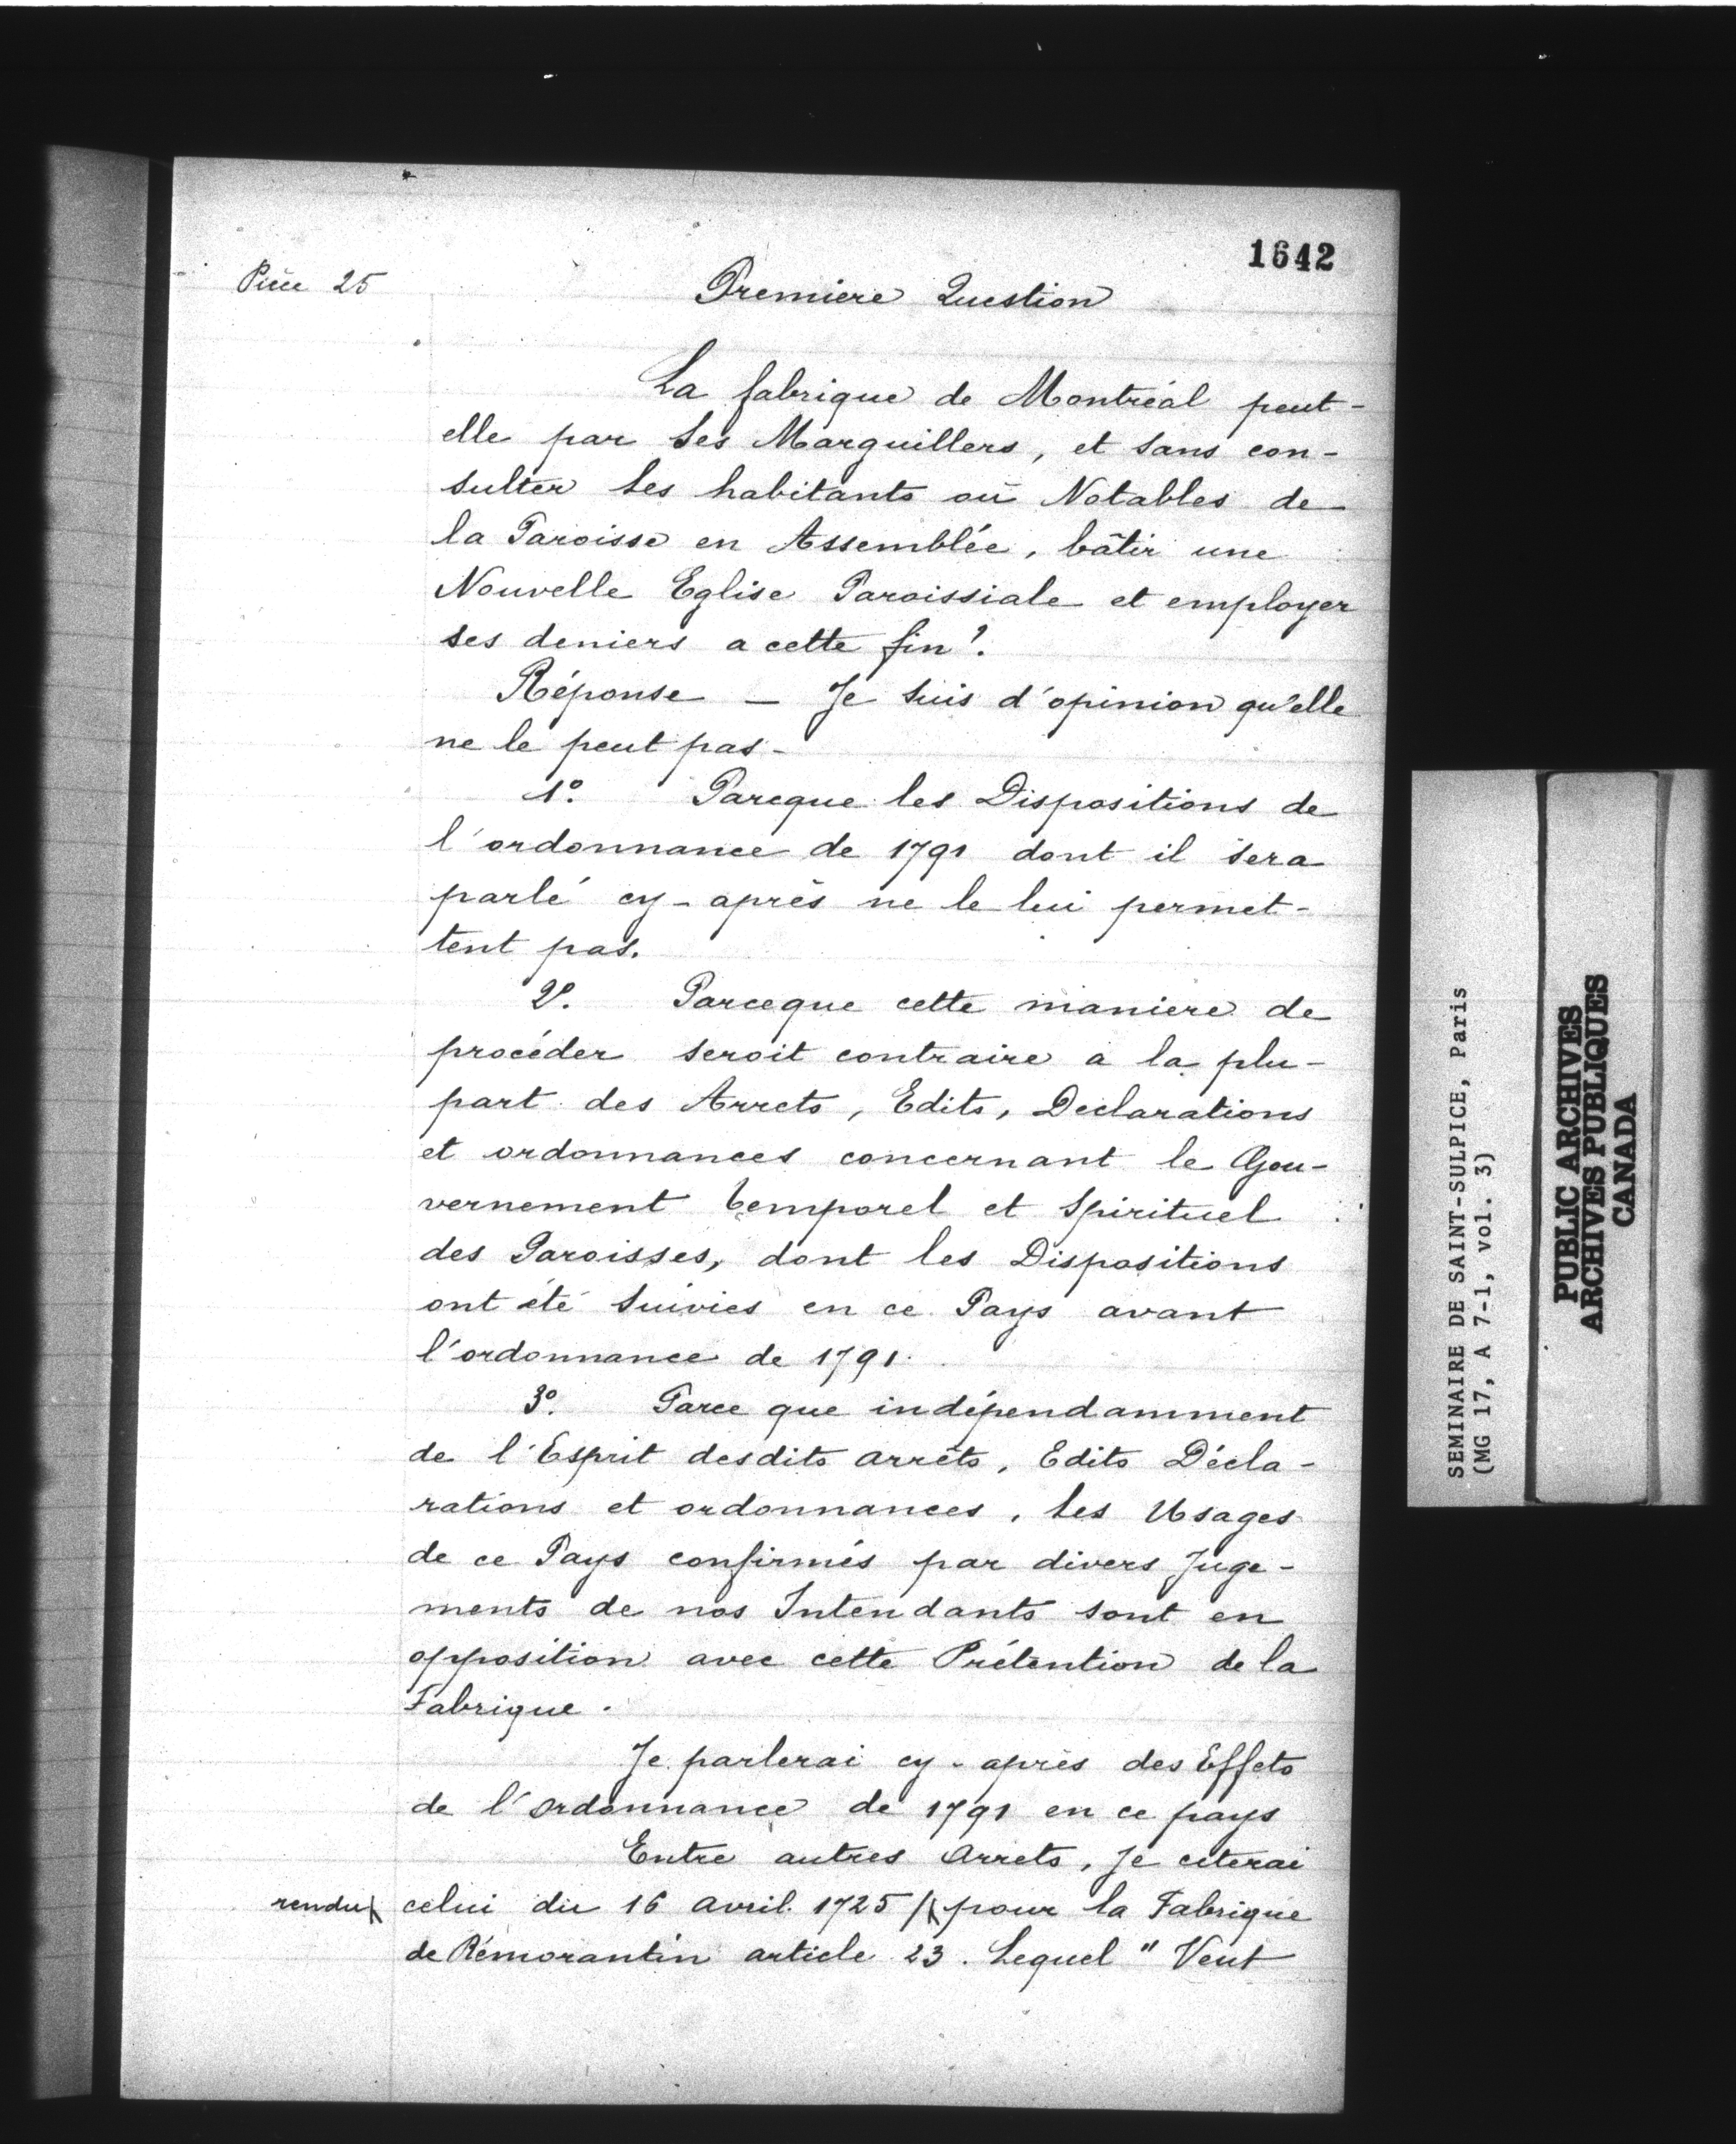 1642
Pièce 25
Premiere Question
La fabrique de Montréal peut-
elle par ses Marguillers, et sans con-
sulter les habitants où Notables de
la Paroisse en Assemblée, bâtir une
Nouvelle Eglise Paroissiale et employer
ses deniers a cette fin?
Réponse — Je suis d'opinion qu'elle
ne le peut pas -
1º. Parcque les Dispositions de
l'ordonnance de 1791 dont il sera
parlé cy-après ne le lui permet-
tent pas.
2º. Parceque cette maniere de
procéder seroit contraire a la plu-
part des Arrets, Edits, Declarations
et ordonnances concernant le Gou-
vernement temporel et Spirituel
des Paroisses, dont les Dispositions
ont été suivies en ce Pays avant
l'ordonnance de 1791.
3º. Parce que indépendamment
de l'Esprit desdits arrêts, Edits Décla-
rations et ordonnances, les Usages
de ce Pays confirmés par divers Juge-
ments de nos Intendants sont en
opposition avec cette Prétention de la
Fabrique.
Je parlerai cy-après des Effets
de l'ordonnance de 1791 en ce pays
Entre autres arrets, Je citerai
rendu celui du 16 avril 1725 / pour la Fabrique
de Rémorantin article 23. Lequel " Veut
SEMINAIRE DE SAINT-SULPICE, Paris
(MG 17, A 7-1, vol. 3)
PUBLIC ARCHIVES
ARCHIVES PUBLIQUES
CANADA